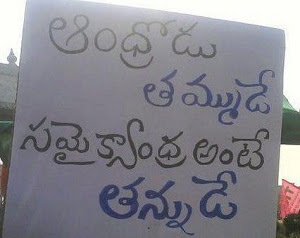 ఆంధ్రోడు
తమ్ముడే
సమైక్యాంధ్ర అంటే
తన్నుడే